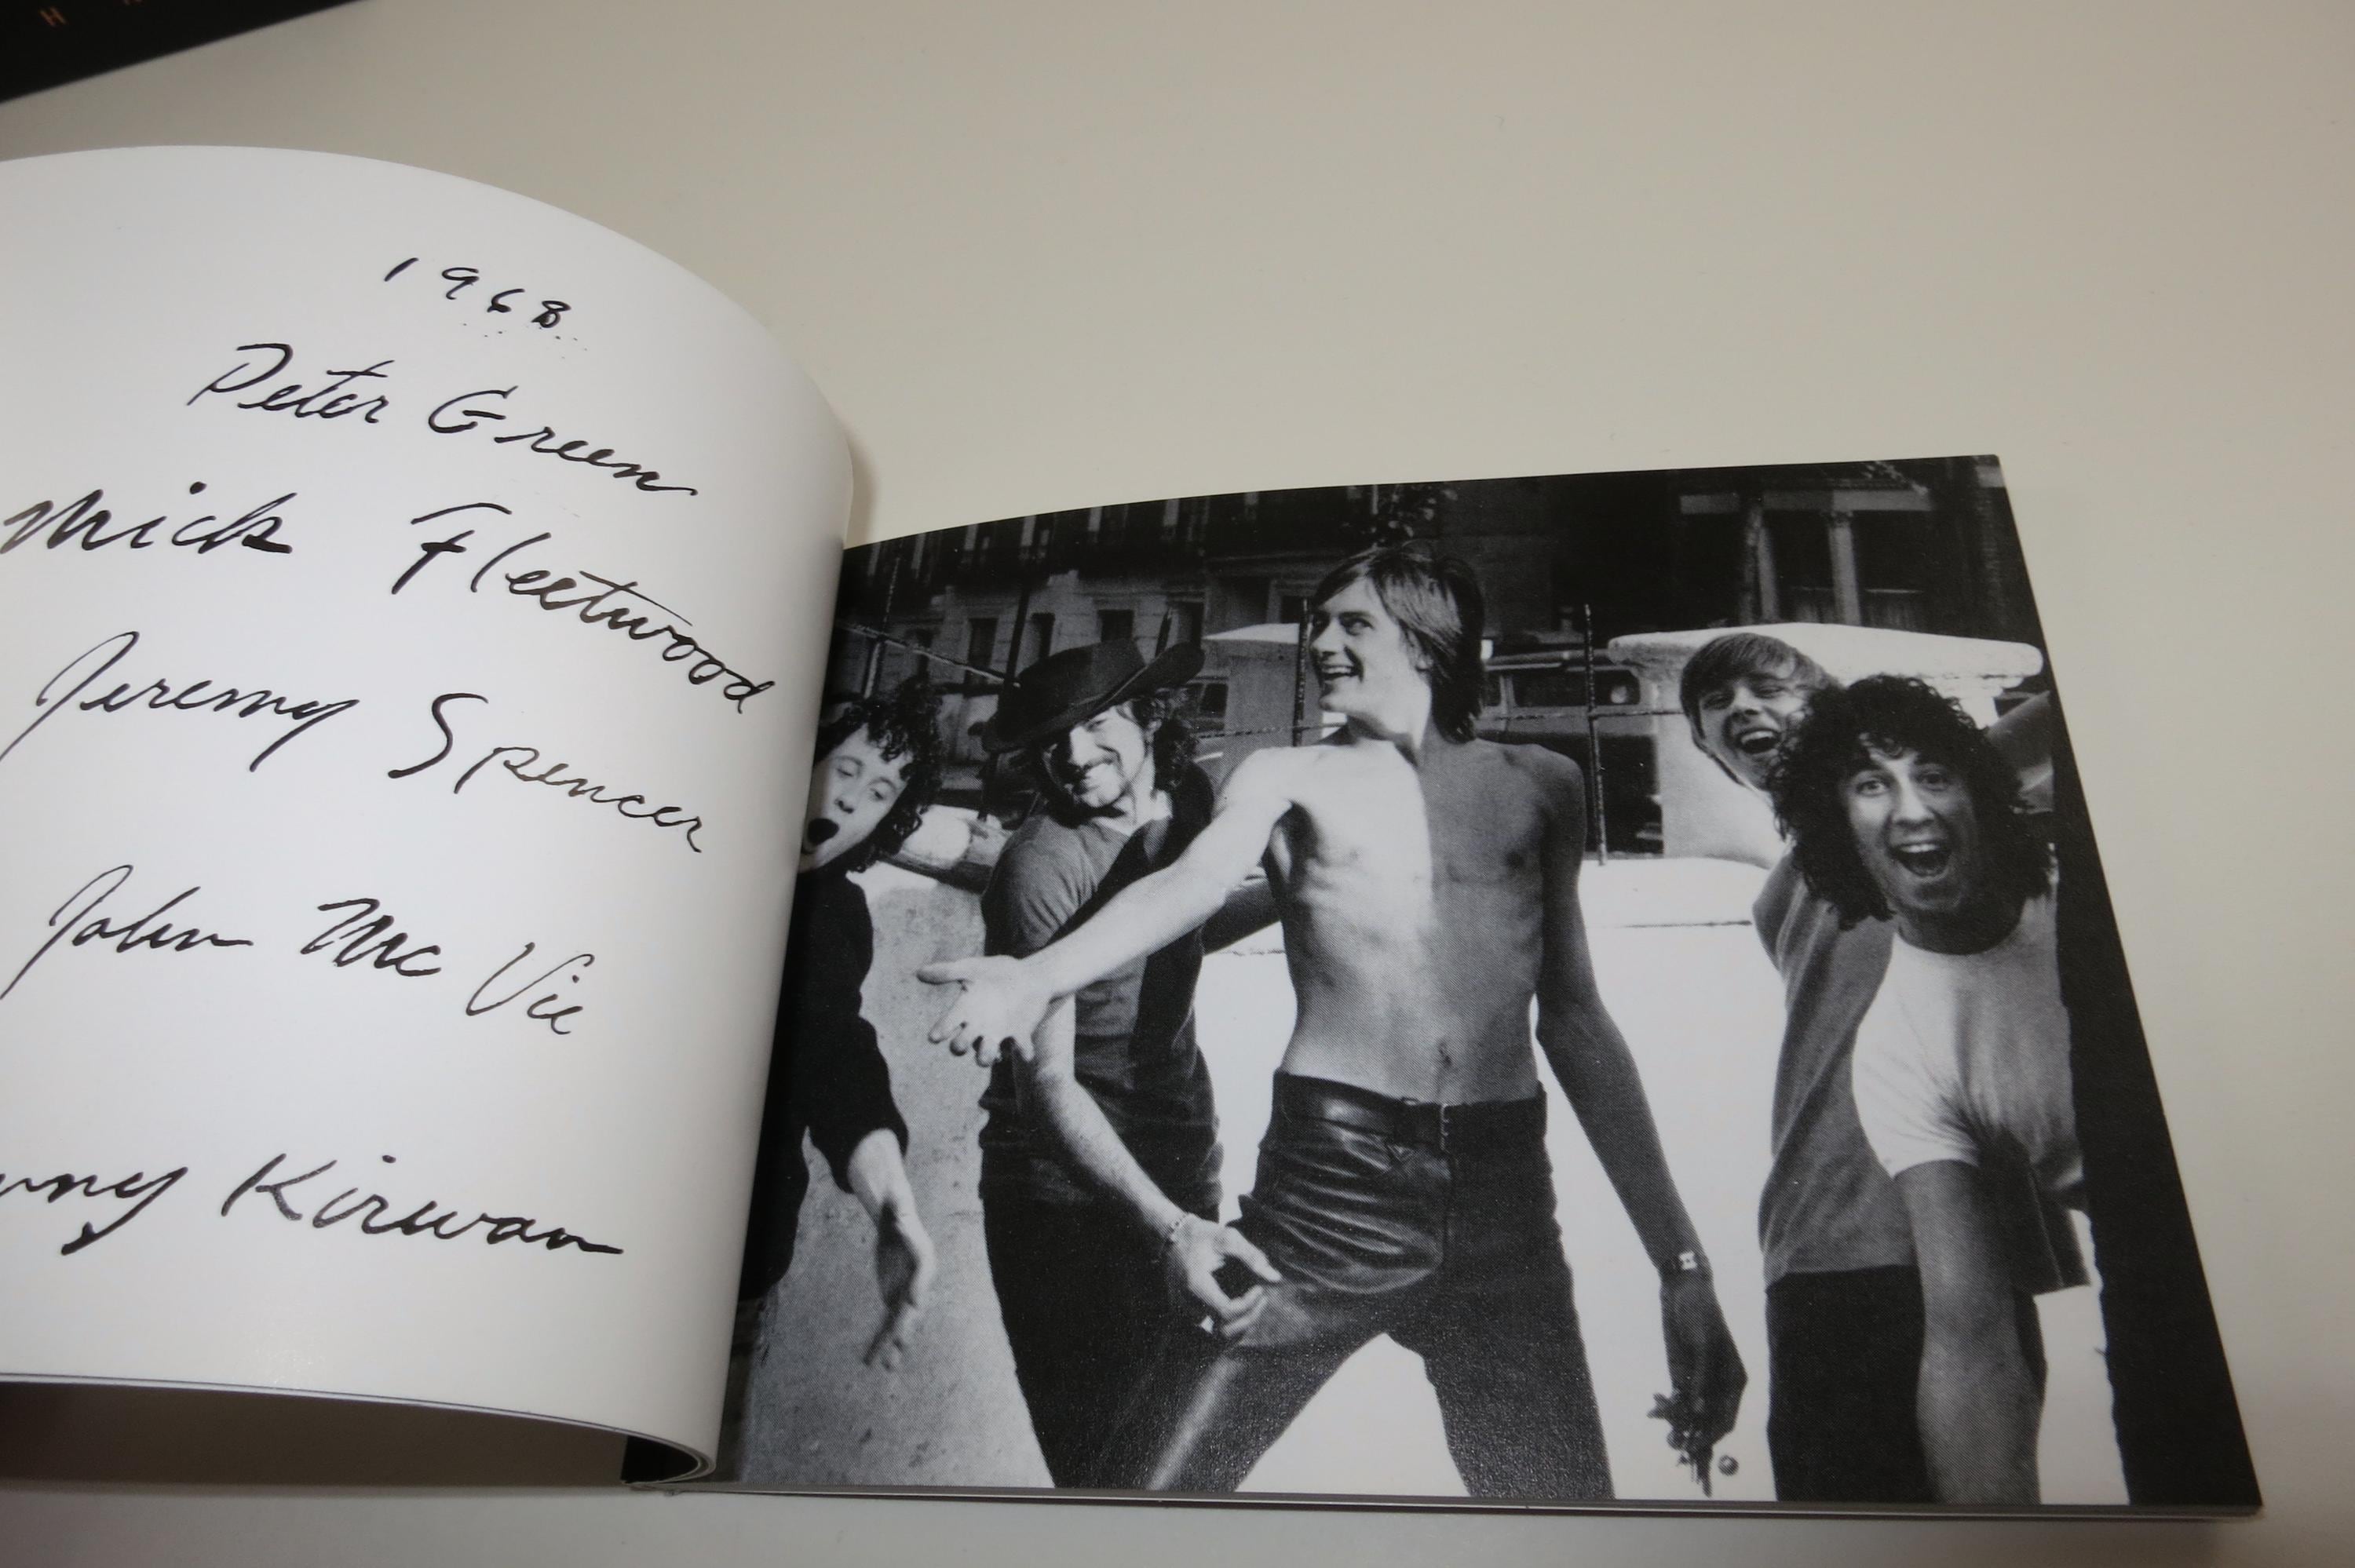 H
1968
Peter Green
Mick Fleetwood
Jeremy Spencer
John Mc Vie
Kirwan